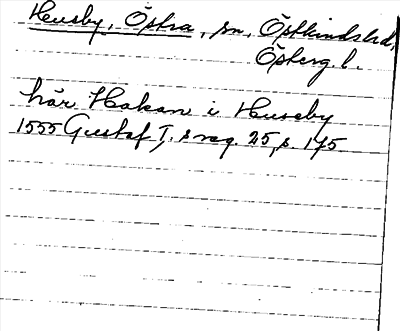 Husby, Östra, sn, Östkindshd,
Österg. l.
här Hakan i Huseby
1555 Gustaf I.s reg. 25, s. 175